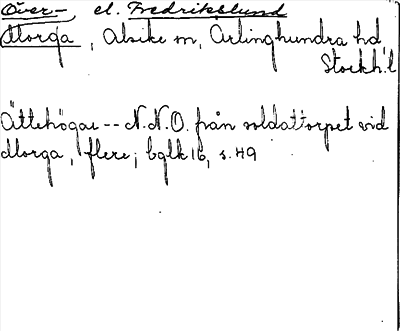 Över- el. Fredrikslund
Morga, Alsike sn, Ärlinghundra hd,
Stockh. l
Ättehögar -- N.N.O. från soldattorpet vid
Morga, flere; bglk 16, s. 49